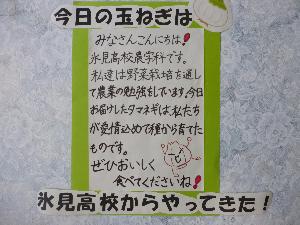 今日の玉ねぎは
みなさんこんにちは!
氷見高校農学科です。
私達は野菜栽培を通し
て農業の勉強をしています。今日
お届けしたタマネギは、私たち
が愛情込めて種から育てた
ものです。
ぜひおいしく
食べてくださいね!
氷見高校からやってきた!